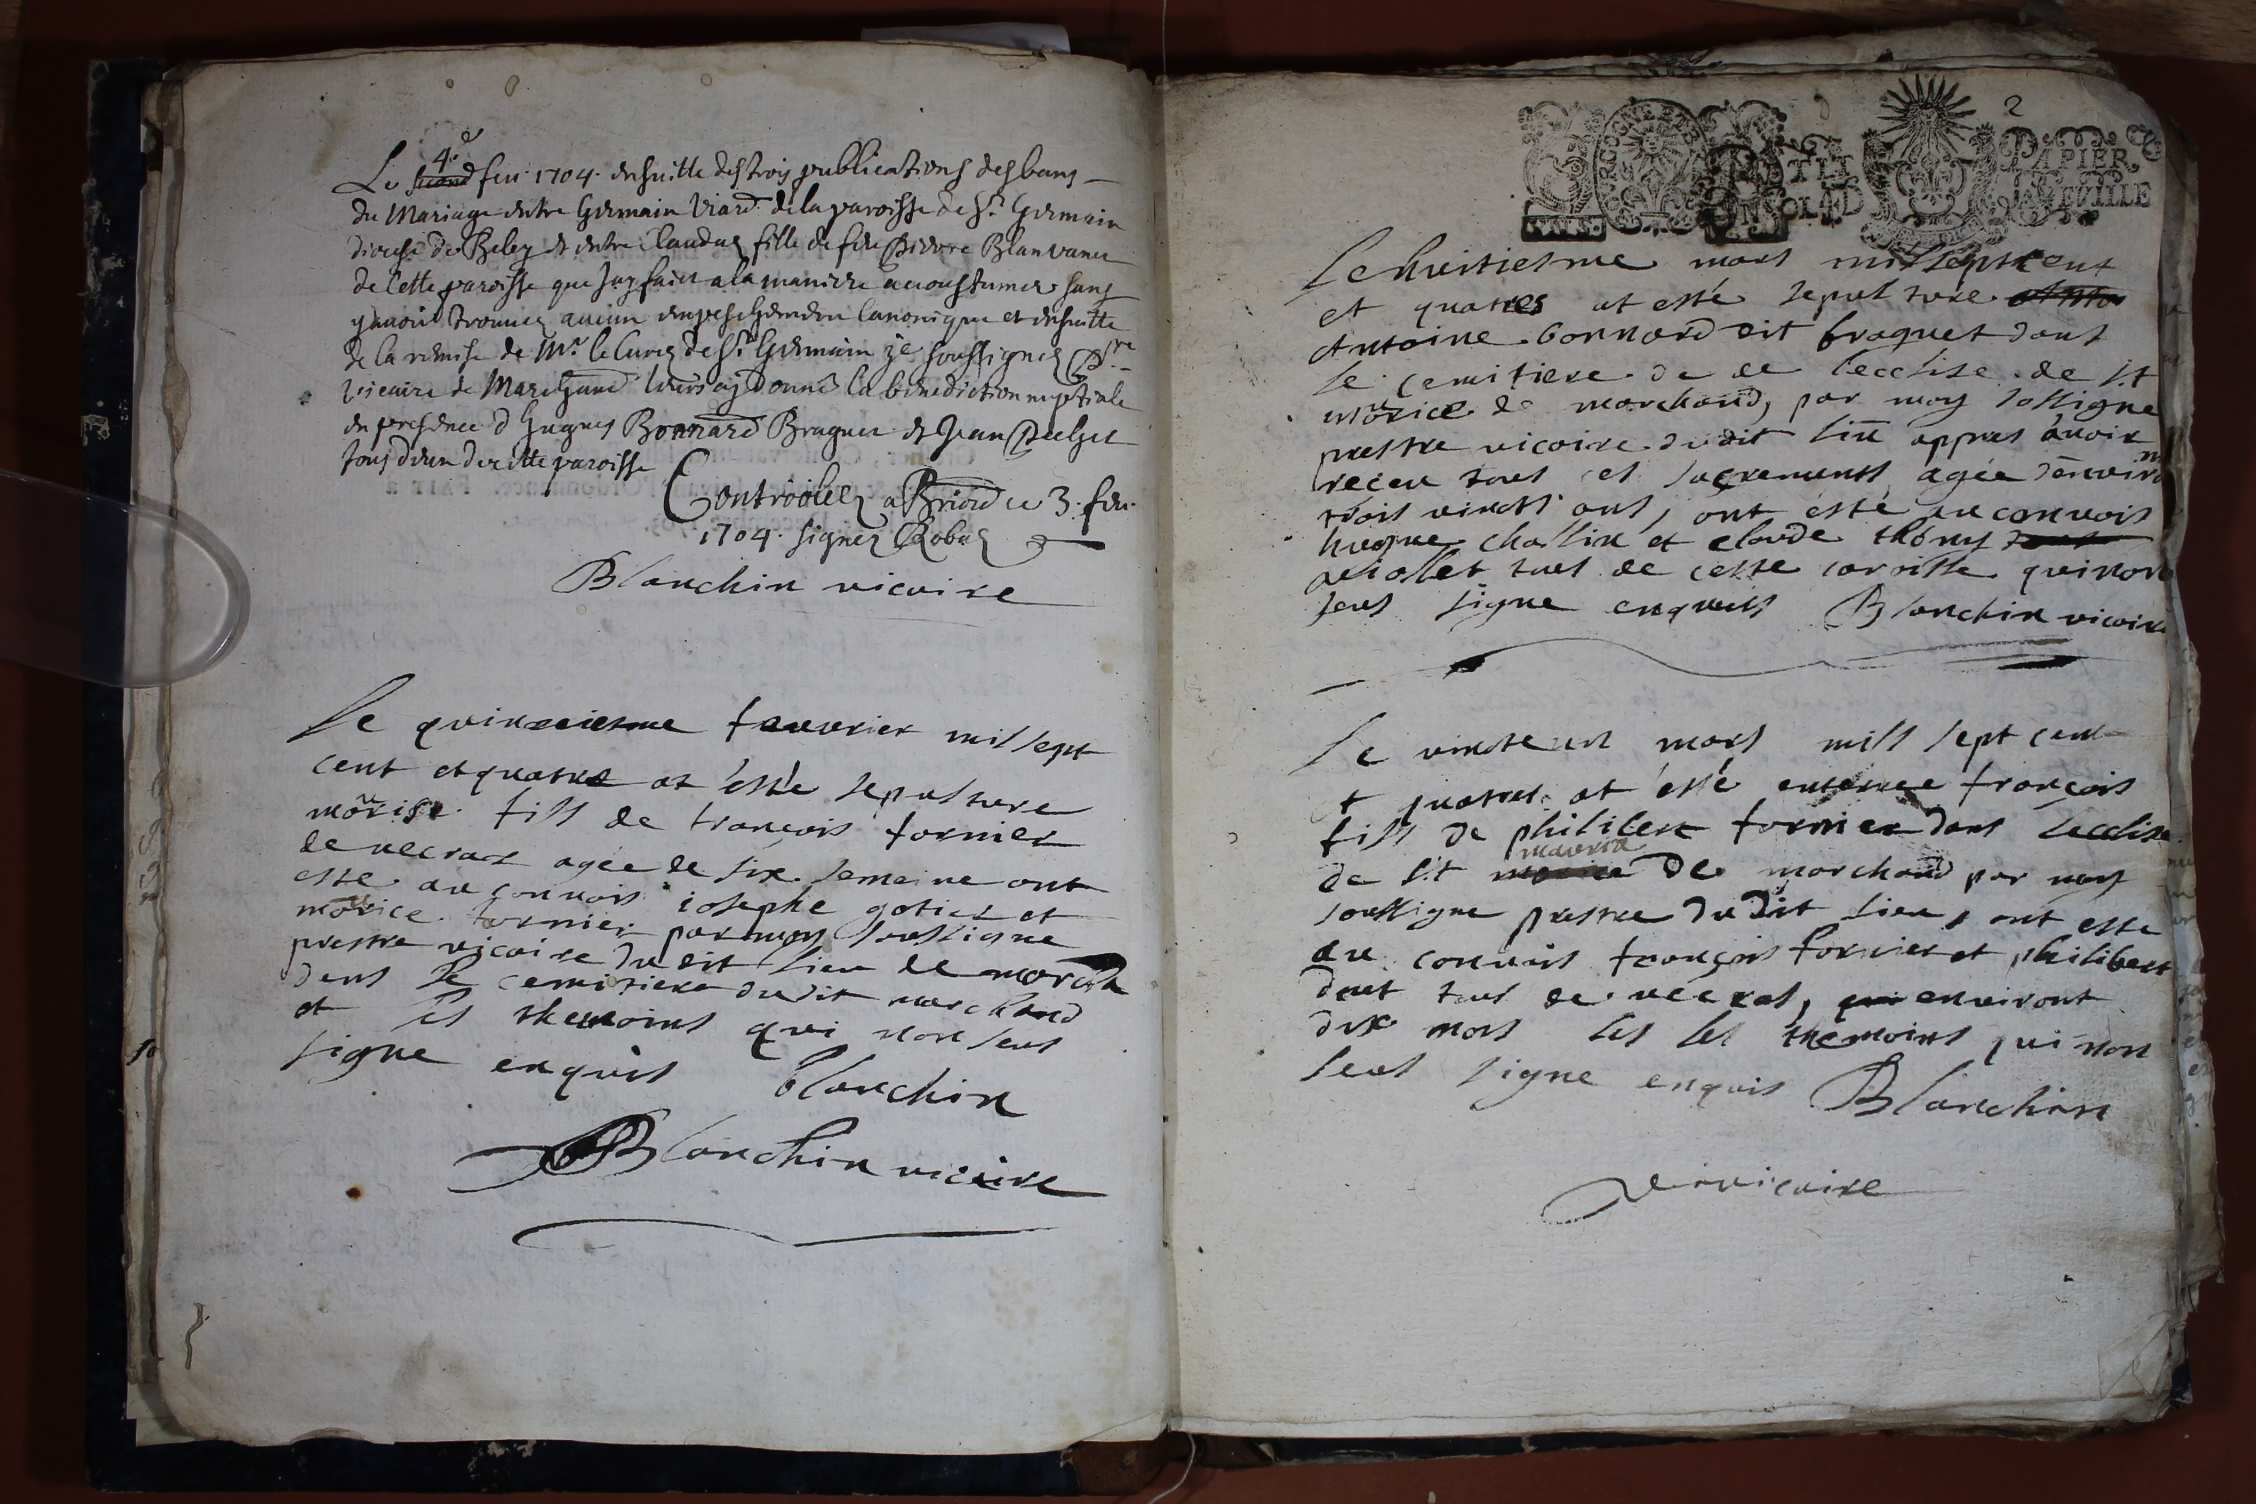 4e
Le second feu. 1704. ensuitte des trois publications des bans
du Mariage entre Germain Viard de la paroisse de St. Germain
diocese de Beley et entre Claudaz fille de feu Pierre Blanvanet
de cette paroisse que Jay faict a la maniere accoustumee sans
y avoir trouvez aucun empeschement Canonique et ensuitte
de la remise de Mr. le Curez de St. Germain je soussignez Ptre
vicaire de Marchand leurs aÿ donné la benediction nuptiale
en presence d'Hugues Bonnard Braguet et Jean
tous deux de cette paroisse
Controollez a Briord ce 3. feu.
1704. signez Robaz
Blanchin vicaire
Le quinzeiesme feuvrier mil sept
cent et quatre at esté sepulture
morise fils de francois fornier
de vecraz agée de six semeine ont
esté au convois iosephe gotier et
morice fornier par moy soussigne
prestre vicaire du dit lieu de march
dens le cemitiere du dit marchand
et les themoins qui non seut
signe enquis blanchin
Blanchin vicaire
2
PAPIER
Le huitiesme mars mil sept cent
et quatres at esté sepulture Anto
Antoine bonnard dit braquet dans
le cemitiere de de lecclise de st
morice de marchand, par moy sossigne
prestre vicaire du dit lieu appres avoir
receu tous ces sacrements agée denviron
trois vincts ans, ont esté au convois
hugue challin et claude thony
violet tous de cette paroisse qui non
seus signe enquis Blanchin vicaire
Le vincte un mars mill sept cent
et quatres at esté enterree françois
fils de philibert fornier dans lecclise
maurice
de st morice de marchand par moy
soussigne prestre du dit lieu, ont esté
au convois françois fornier et philibert
tous de vecras, environt
dix mois les les themoins qui non
seus signe enquis Blanchin
vicaire